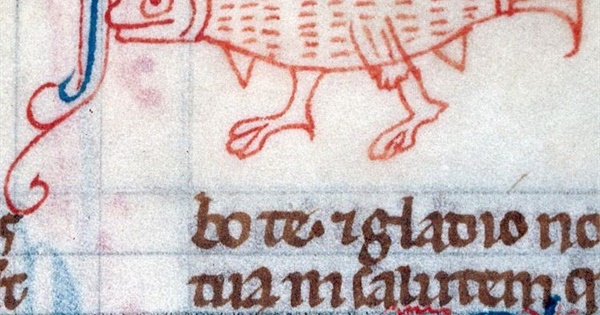 s
ſt
bo te· ⁊ gladio no
tua in ſalutem q